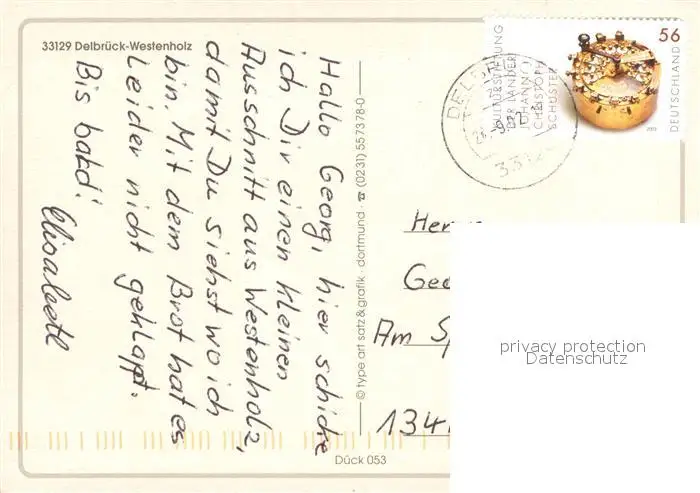 33129 Delbrück-Westenholz
Hallo Georg, hier schicke
ich Dir einen kleinen
Ausschnitt aus Westenholz,
damit Du siehst wo ich
bin. Mit dem Brot hat es
Leider nicht geklappt.
Bis bald!
Elisabeth
© type art satz & grafik · dortmund · ☎ (0231) 557378-0
Dück 053
KULTURSTIFTUNG
DER LÄNDER
JOHANN
CHRISTOPH
SCHUSTER
56
DEUTSCHLAND
DELB
3312
Herrn
Geo
Am Sp
134
privacy protection
Datenschutz